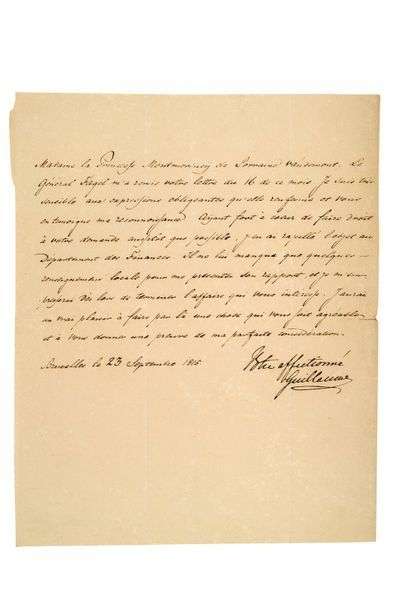 Madame la Princesse Montmorency de Lorraine Vaudemont. Le
Général Fagel m'a remis votre lettre du 16 de ce mois. Je suis très
sensible aux expressions obligeantes qu'elle renferme et vous
en témoigne ma reconnoissance. Ayant fort à cœur de faire droit
à votre demande aussitôt que possible, j'en ai rappellé l'objet au
Département des Finances. Il ne lui manque que quelques
renseignemens locals pour me présenter son rapport et je
propose dès lors de terminer l'affaire qui vous intéresse. J'aurai
un vrai plaisir à faire par là une chose qui vous soit agréable
et à vous donner une preuve de ma parfaite considération.
Bruxelles le 23 Septembre 1815
Votre affectionné
Guillaume